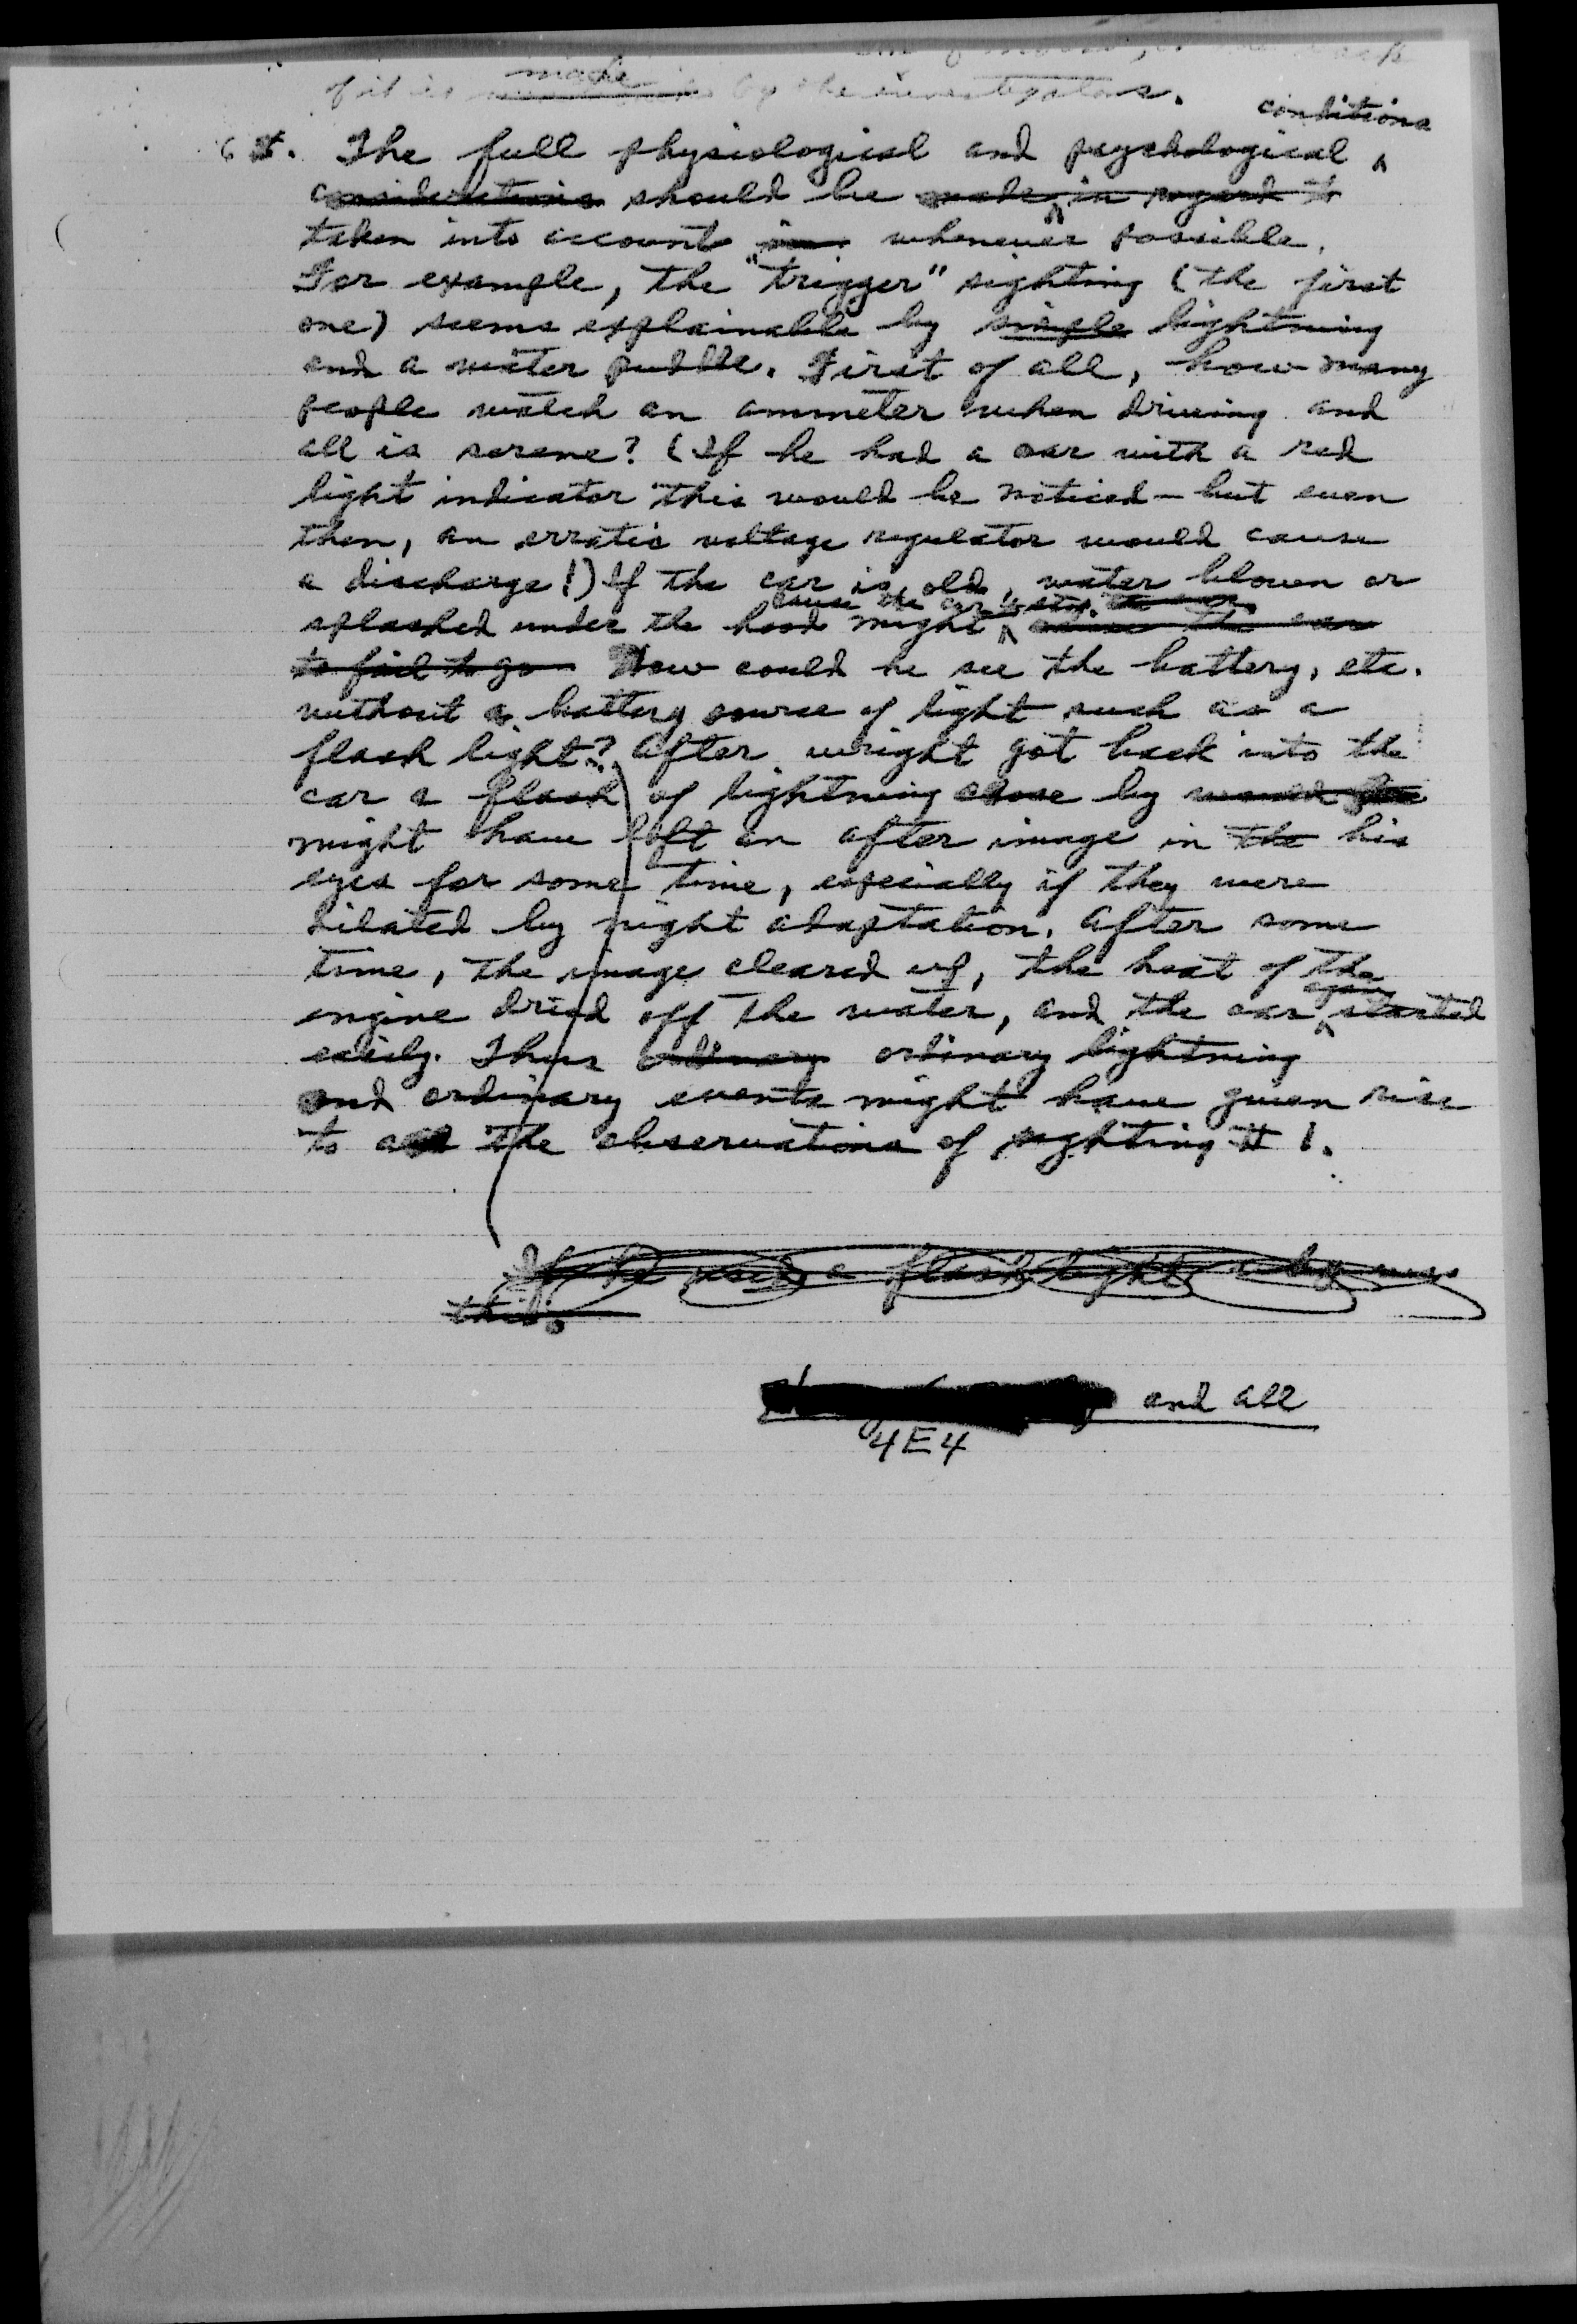 made
of it is by the investigators.
conditions
6. The full physiological and psychological ^
considerations should be made in regard to
taken into account in whenever possible.
For example, the "trigger" sighting (the first
one) seems explainable by simple lightning
and a water puddle. First of all, how many
people watch an ammeter when driving and
all is serene? (If he had a car with a red
light indicator this would be noticed - but even
then, an erratic voltage regulator would cause
a discharge!) If the car is old, water blown or
cause the car to stop.
splashed under the hood might ^ cause the car
to fail to go How could he see the battery, etc.
without a battery source of light such as a
flash light? After wright got back into the
car a flash of lightning close by would
might have left an after image in the his
eyes for some time, especially if they were
dilated by night adaptation. After some
time, the image cleared up, the heat of the
again
engine dried off the water, and the car ^ started
easily. Thus ordinary ordinary lightning
and ordinary events might have given rise
to all the observations of sighting # 1.
If he used a flash light
this.
and all
4E4